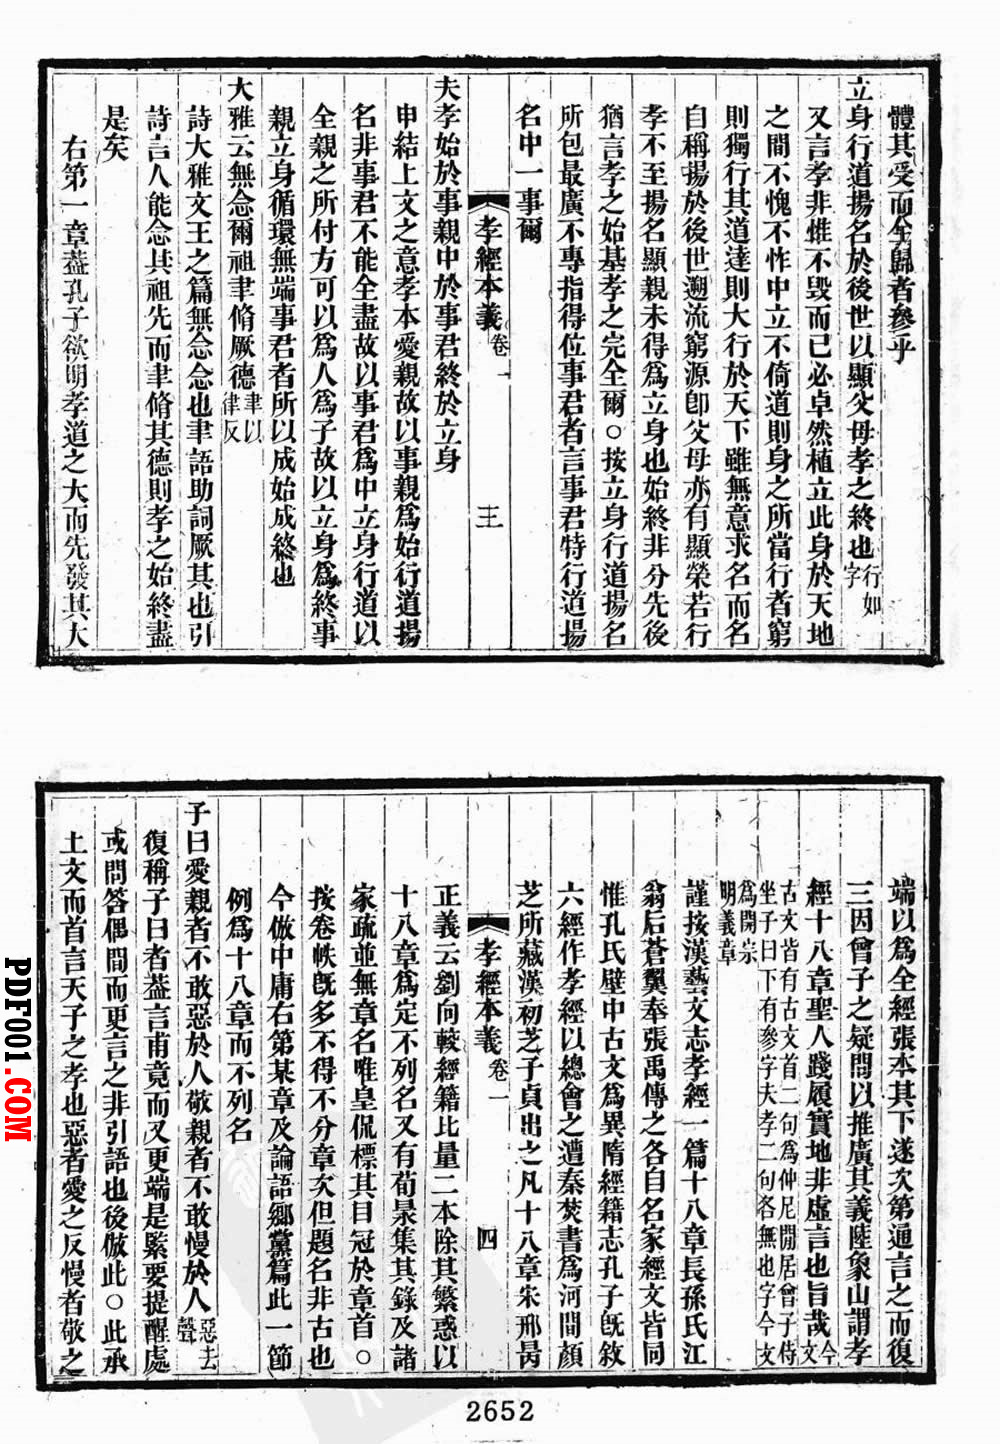 體其受而全歸者參乎
立身行道揚名於後世以顯父母孝之終也行如字
又言孝非惟不毁而已必卓然植立此身於天地
之間不愧不怍中立不倚道則身之所當行者窮
則獨行其道達則大行於天下雖無意求名而名
自稱揚於後世遡流窮源卽父母亦有顯榮若行
孝不至揚名顯親未得為立身也始終非分先後
猶言孝之始基孝之完全爾○按立身行道揚名
所包最廣不專指得位事君者言事君特行道揚
名中一事爾
孝經本義 卷一 三
夫孝始於事親中於事君終於立身
申結上文之意孝本愛親故以事親為始行道揚
名非事君不能全盡故以事君為中立身行道以
全親之所付方可以為人為子故以立身為終事
親立身循環無端事君者所以成始成終也
大雅云無念爾祖聿脩厥德聿以律反
詩大雅文王之篇無念念也聿語助詞厥其也引
詩言人能念其祖先而聿脩其德則孝之始終盡
是矣
右第一章葢孔子欲明孝道之大而先發其大
端以為全經張本其下遂次第通言之而復
三因曾子之疑問以推廣其義陸象山謂孝
經十八章聖人踐履實地非虛言也旨哉今文
古文皆有古文首二句為仲尼閒居曾子侍
坐子曰下有參字夫孝二句各無也字今文
為開宗
明義章
謹按漢藝文志孝經一篇十八章長孫氏江
翁后蒼翼奉張禹傳之各自名家經文皆同
惟孔氏壁中古文為異隋經籍志孔子旣敘
六經作孝經以總會之遭秦焚書為河間顏
芝所藏漢初芝子貞出之凡十八章宋邢昺
孝經本義 卷一 四
正義云劉向較經籍比量二本除其繁惑以
十八章為定不列名又有荀昶集其錄及諸
家疏並無章名唯皇侃標其目冠於章首○
按卷帙旣多不得不分章次但題名非古也
今倣中庸右第某章及論語鄉黨篇此一節
例為十八章而不列名
子曰愛親者不敢惡於人敬親者不敢慢於人惡去聲
復稱子曰者葢言甫竟而又更端是緊要提醒處
或問答偶間而更言之非引語也後倣此○此承
上文而首言天子之孝也惡者愛之反慢者敬之
2652
PDF001.COM